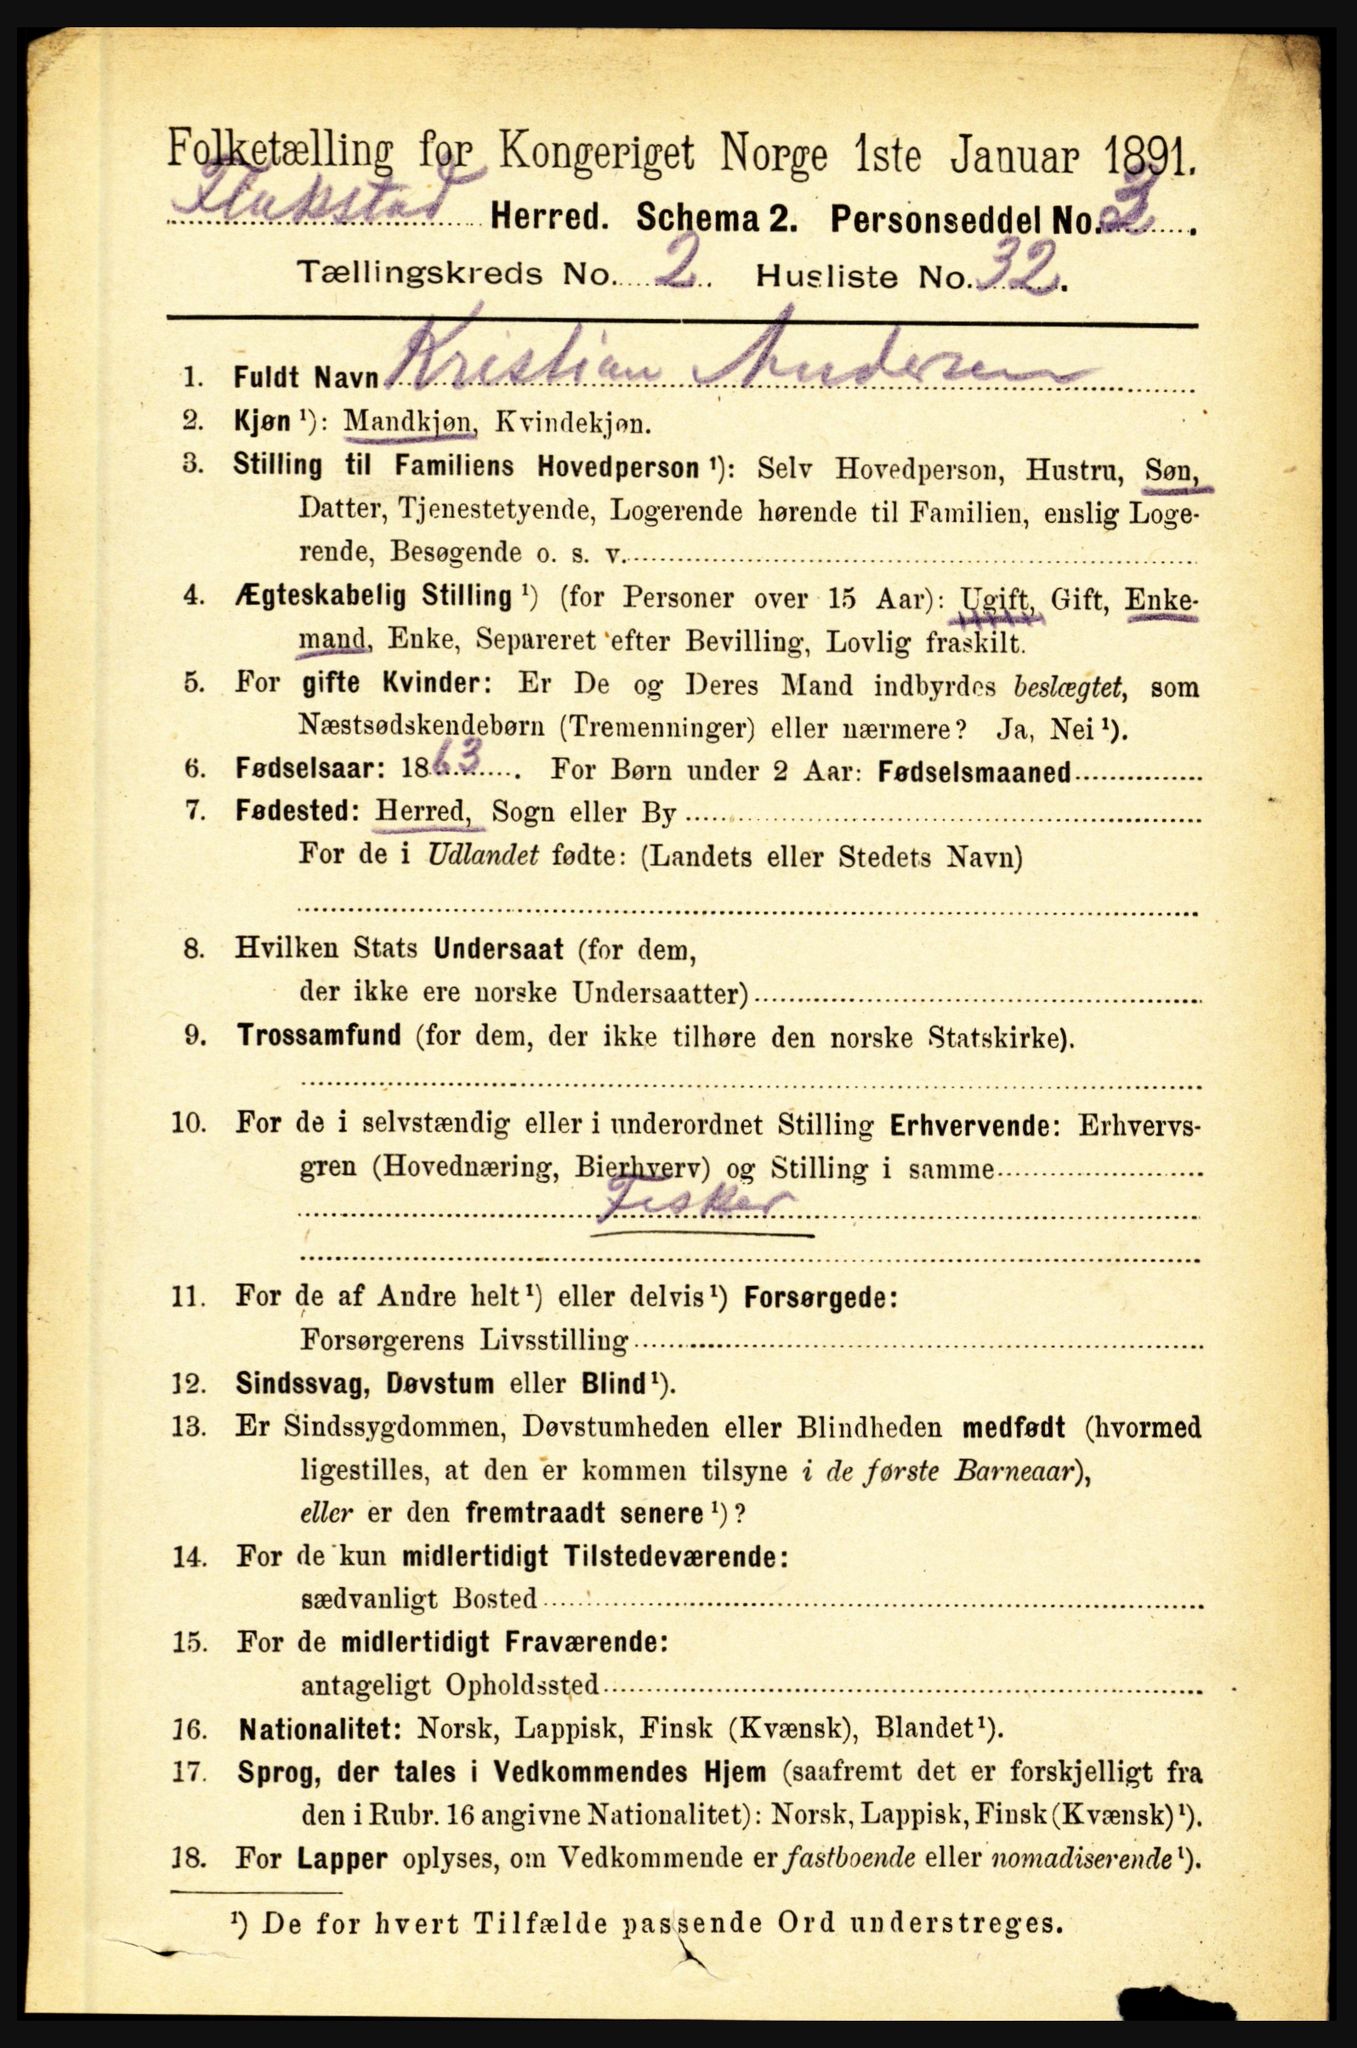 Folketælling for Kongeriget Norge 1ste Januar 1891.
Flakstad Herred. Schema 2. Personseddel No. 3.
Tællingskreds No. 2. Husliste No. 32.
1. Fuldt Navn Kristian Andersen
2. Kjøn ¹): Mandkjøn, Kvindekjøn.
3. Stilling til Familiens Hovedperson ¹): Selv Hovedperson, Hustru, Søn,
Datter, Tjenestetyende, Logerende hørende til Familien, enslig Loge-
rende, Besøgende o. s. v.
4. Ægteskabelig Stilling ¹) (for Personer over 15 Aar): Ugift, Gift, Enke-
mand, Enke, Separeret efter Bevilling, Lovlig fraskilt.
5. For gifte Kvinder: Er De og Deres Mand indbyrdes beslægtet, som
Næstsødskendebørn (Tremenninger) eller nærmere? Ja, Nei ¹).
6. Fødselsaar: 1863. For Børn under 2 Aar: Fødselsmaaned
7. Fødested: Herred, Sogn eller By
For de i Udlandet fødte: (Landets eller Stedets Navn)
8. Hvilken Stats Undersaat (for dem,
der ikke ere norske Undersaatter)
9. Trossamfund (for dem, der ikke tilhøre den norske Statskirke).
10. For de i selvstændig eller i underordnet Stilling Erhvervende: Erhvervs-
gren (Hovednæring, Bierhverv) og Stilling i samme
Fisker
11. For de af Andre helt ¹) eller delvis ¹) Forsørgede:
Forsørgerens Livsstilling
12. Sindssvag, Døvstum eller Blind ¹).
13. Er Sindssygdommen, Døvstumheden eller Blindheden medfødt (hvormed
ligestilles, at den er kommen tilsyne i de første Barneaar),
eller er den fremtraadt senere ¹)?
14. For de kun midlertidigt Tilstedeværende:
sædvanligt Bosted
15. For de midlertidigt Fraværende:
antageligt Opholdssted
16. Nationalitet: Norsk, Lappisk, Finsk (Kvænsk), Blandet ¹).
17. Sprog, der tales i Vedkommendes Hjem (saafremt det er forskjelligt fra
den i Rubr. 16 angivne Nationalitet): Norsk, Lappisk, Finsk (Kvænsk) ¹).
18. For Lapper oplyses, om Vedkommende er fastboende eller nomadiserende ¹).
¹) De for hvert Tilfælde passende Ord understreges.